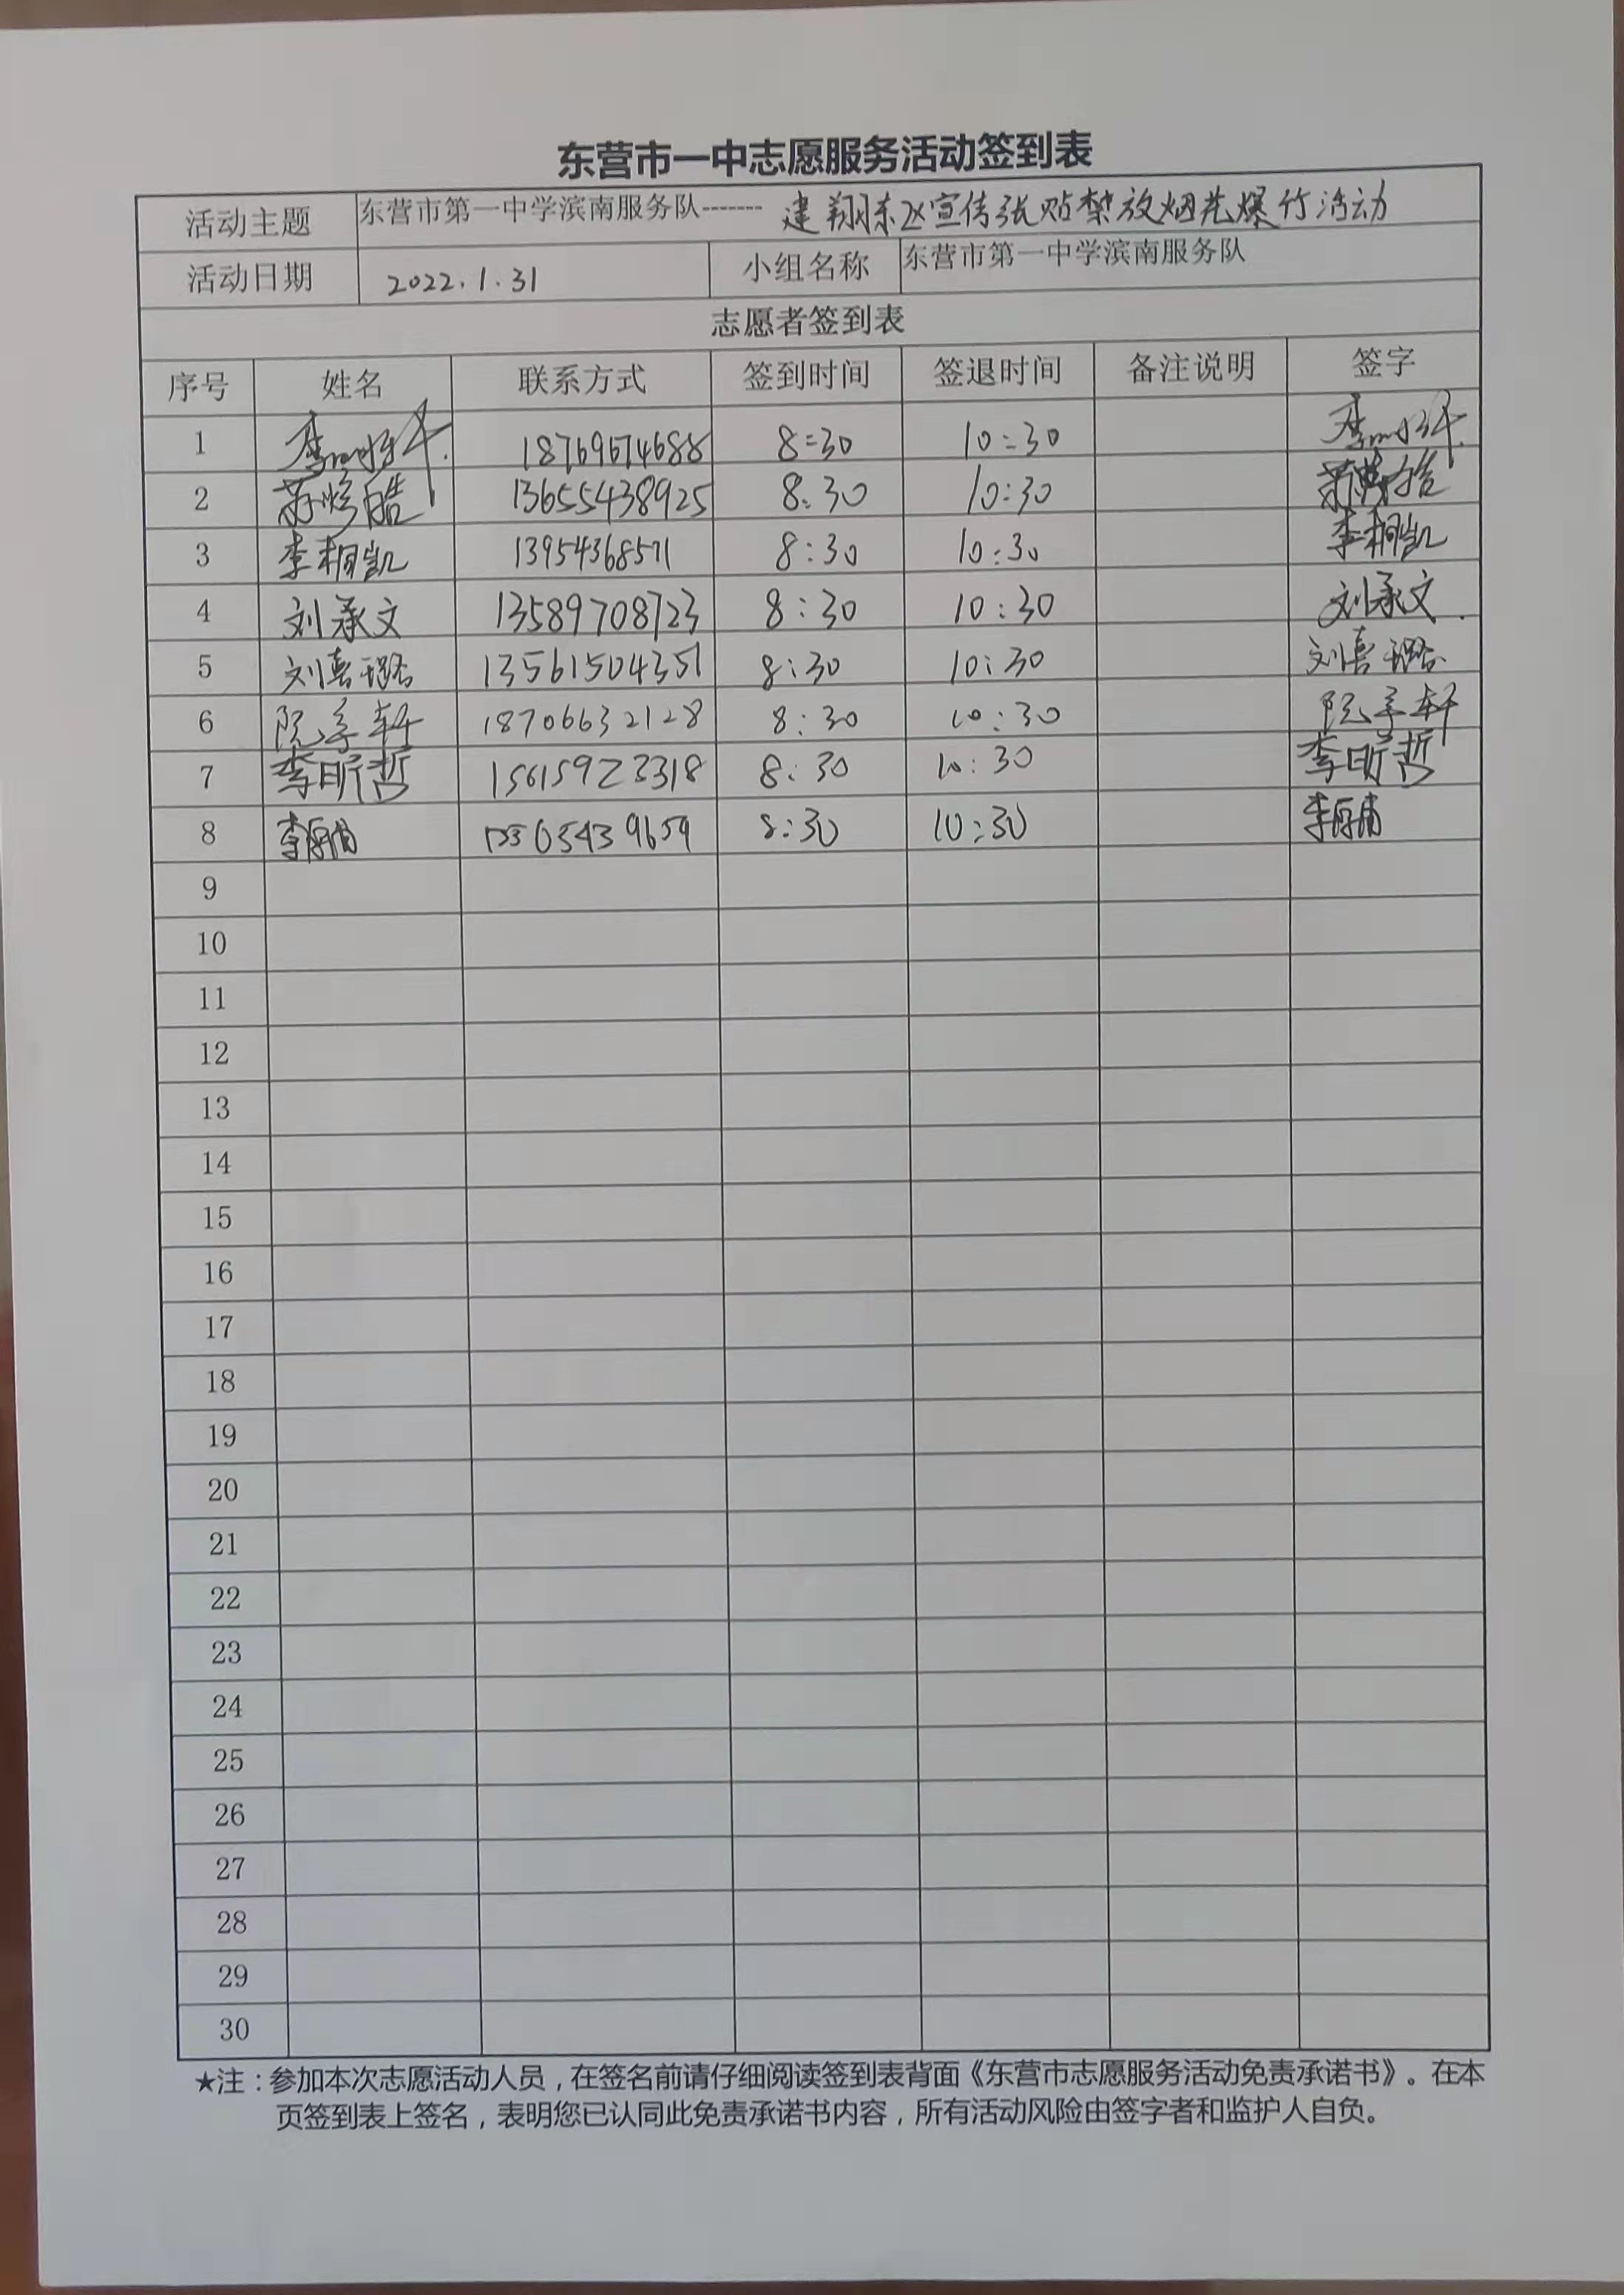 东营市一中志愿服务活动签到表
活动主题 东营市第一中学滨南服务队------- 建翔东区宣传张贴禁放烟花爆竹活动
活动日期 2022.1.31 小组名称 东营市第一中学滨南服务队
志愿者签到表
序号 姓名 联系方式 签到时间 签退时间 备注说明 签字
1 李 18769674688 8:30 10:30 李
2 苏 皓 13655438925 8:30 10:30 苏 皓
3 李桐凯 13954368571 8:30 10:30 李桐凯
4 刘承文 13589708723 8:30 10:30 刘承文
5 刘喜璐 13561504351 8:30 10:30 刘喜璐
6 阮 轩 18706632128 8:30 10:30 阮 轩
7 李昕哲 15615923318 8:30 10:30 李昕哲
8 李厚甫 8:30 10:30 李厚甫
9
10
11
12
13
14
15
16
17
18
19
20
21
22
23
24
25
26
27
28
29
30
★注：参加本次志愿活动人员，在签名前请仔细阅读签到表背面《东营市志愿服务活动免责承诺书》。在本
页签到表上签名，表明您已认同此免责承诺书内容，所有活动风险由签字者和监护人自负。